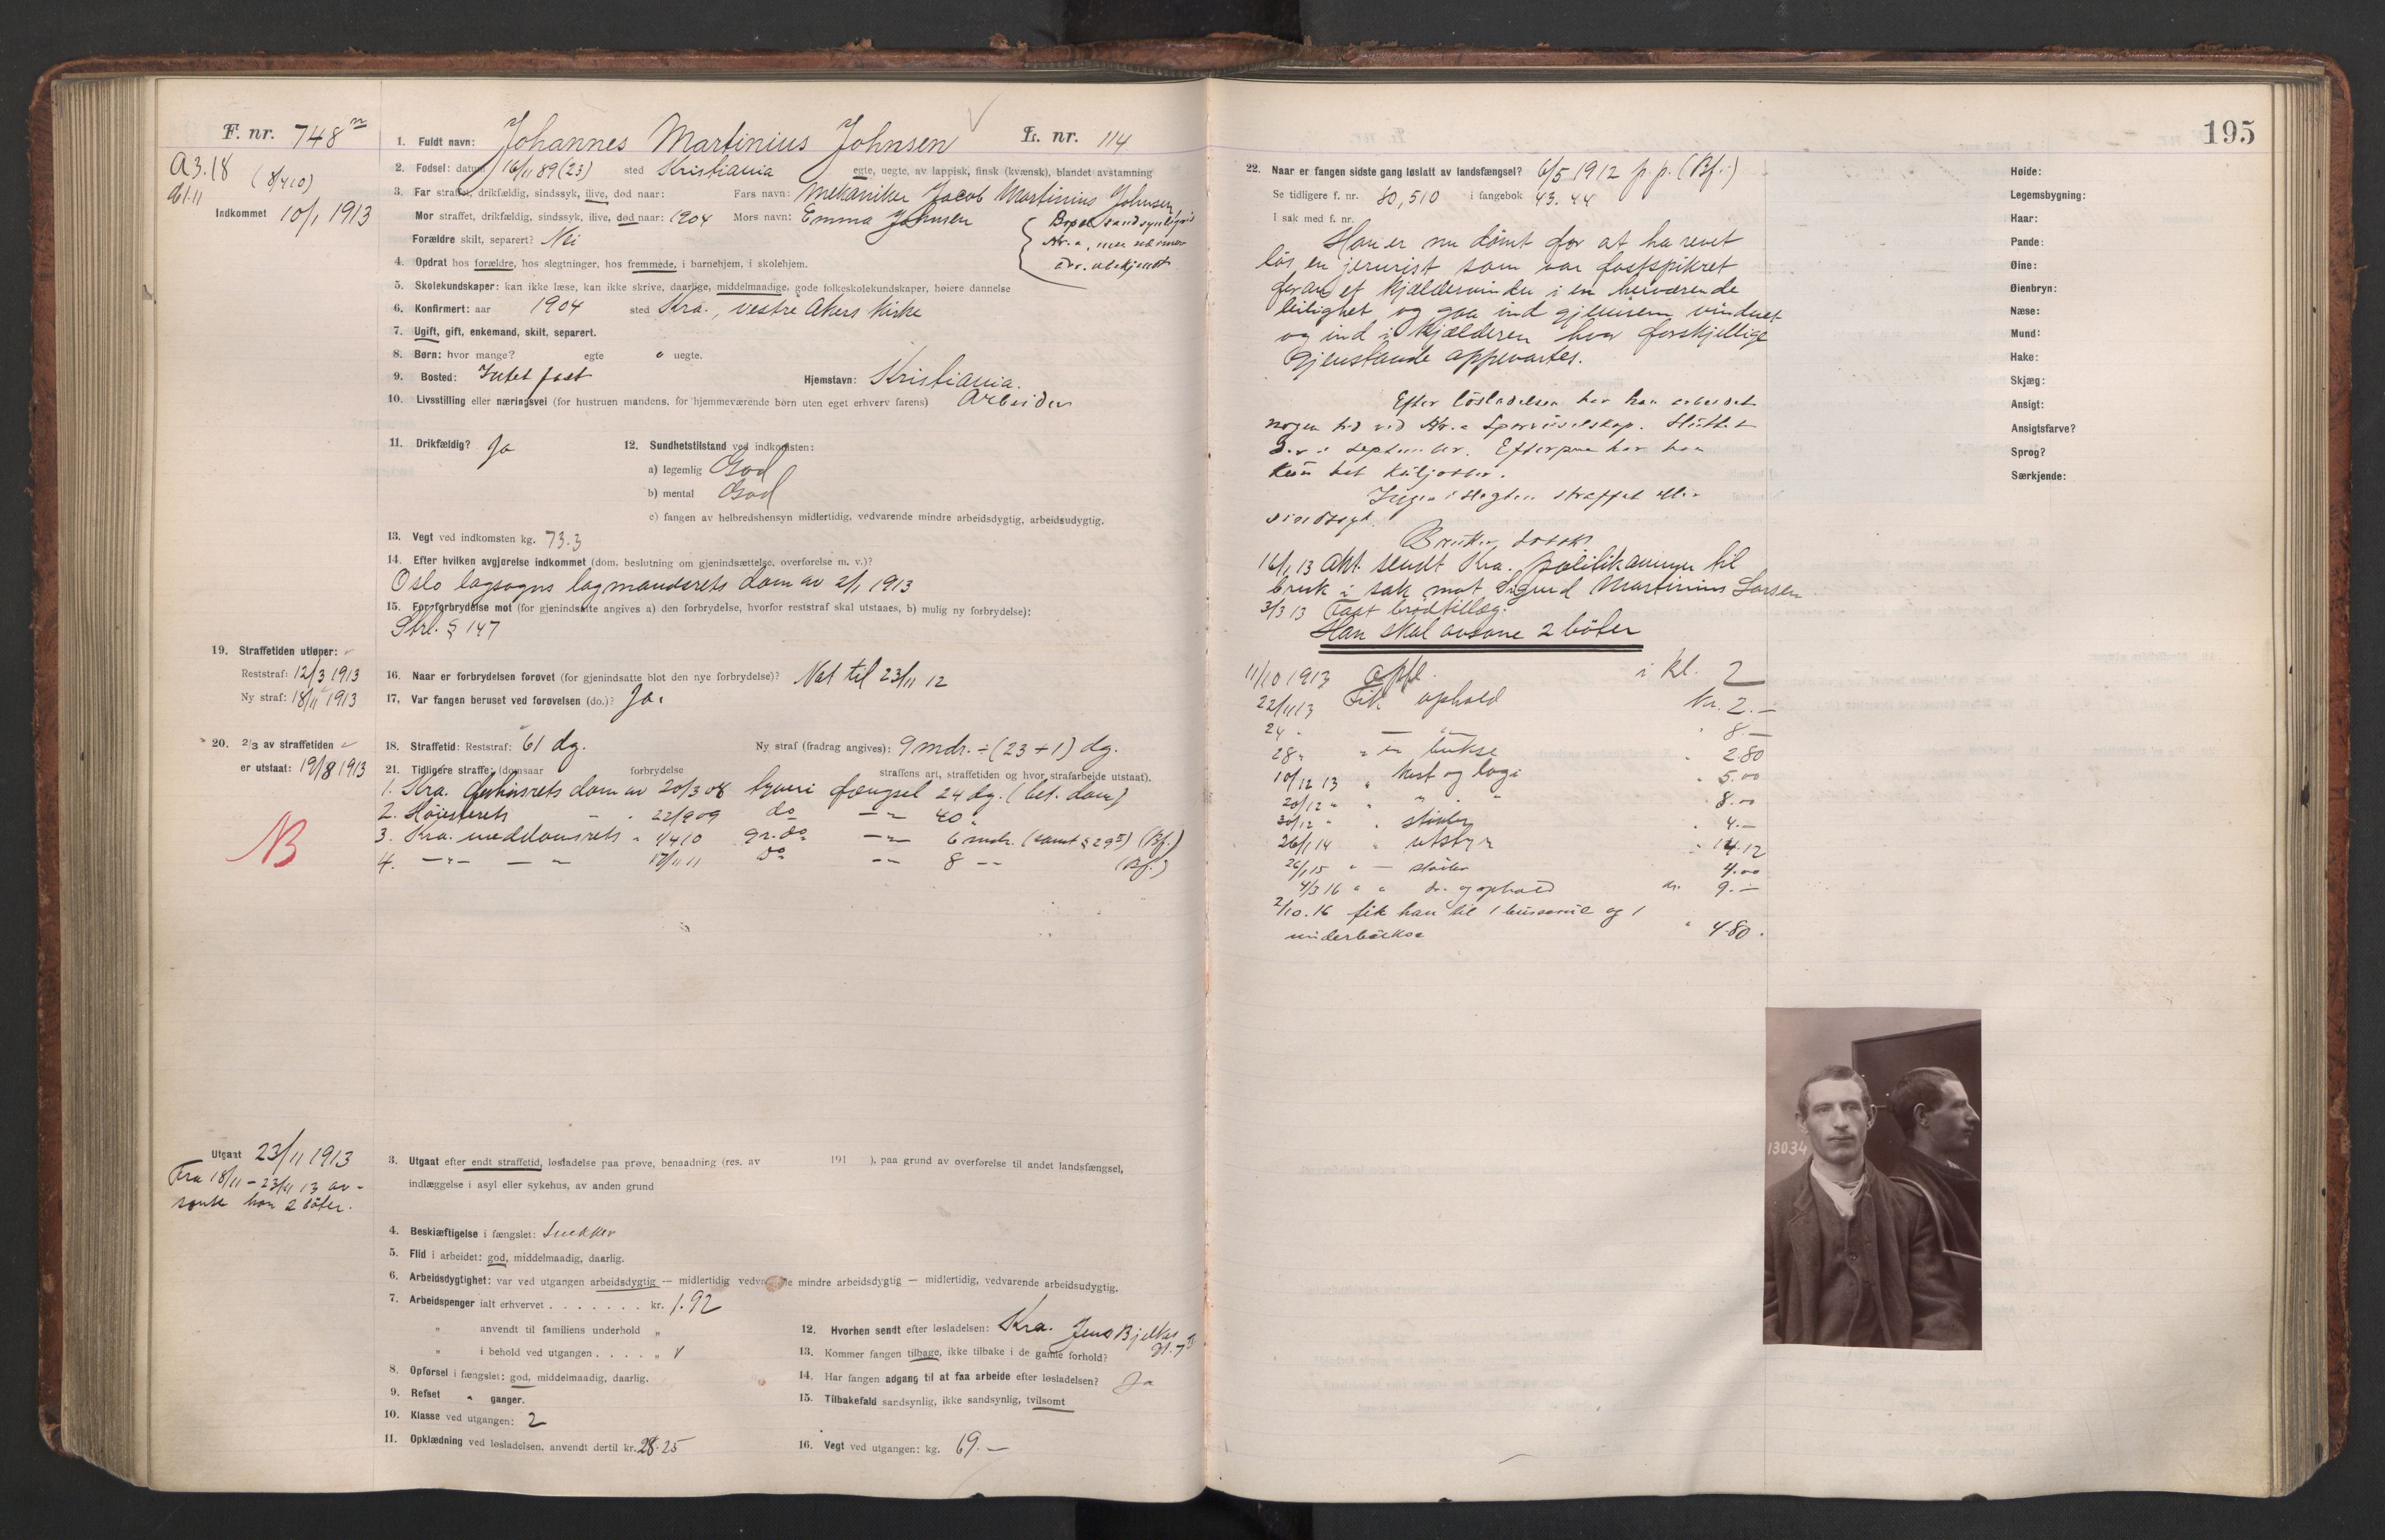 F. nr. 748
A3.18 (8/410)
Indkommet 10/1 1913
1. Fuldt navn: Johannes Martinius Johnsen L. nr. 114
2. Fødsel: datum 16/11 89 (23) sted Kristiania egte, uegte, av lappisk, finsk (kvænsk), blandet avstamning
3. Far straffet, drikfældig, sindssyk, ilive, død naar: Fars navn: Mekaniker Jacob Martinius Johnsen
Mor straffet, drikfældig, sindssyk, ilive, død naar: 1904 Mors navn: Emma Johnsen
Bopæl sandsynligvis
Kr.a, men nærmere
adr. ubekjendt
Forældre skilt, separert? Nei
4. Opdrat hos forældre, hos slegtninger, hos fremmede, i barnehjem, i skolehjem.
5. Skolekundskaper: kan ikke læse, kan ikke skrive, daarlige, middelmaadige, gode folkeskolekundskaper, høiere dannelse
6. Konfirmert: aar 1904 sted Kra., vestre Akers kirke
7. Ugift, gift, enkemand, skilt, separert.
8. Børn: hvor mange? egte " uegte.
9. Bosted: Intet fast Hjemstavn: Kristiania.
10. Livsstilling eller næringsvei (for hustruen mandens, for hjemmeværende børn uten eget erhverv farens) Arbeider
11. Drikfældig? Ja 12. Sundhetstilstand ved indkomsten:
a) legemlig God
b) mental God
c) fangen av helbredshensyn midlertidig, vedvarende mindre arbeidsdygtig, arbeidsudygtig.
13. Vegt ved indkomsten kg. 73.3
14. Efter hvilken avgjørelse indkommet (dom, beslutning om gjenindsættelse, overførelse m. v.)?
Oslo lagsogns lagmandsrets dom av 2/1 1913
15. For forbrydelse mot (for gjenindsatte angives a) den forbrydelse, hvorfor reststraf skal utstaaes, b) mulig ny forbrydelse):
Strl. § 147
19. Straffetiden utløper:
Reststraf: 12/3 1913
Ny straf: 18/11 1913
16. Naar er forbrydelsen forøvet (for gjenindsatte blot den nye forbrydelse)? Nat til 23/11 12
17. Var fangen beruset ved forøvelsen (do.)? Ja.
20. 2/3 av straffetiden
er utstaat: 19/8 1913
18. Straffetid: Reststraf: 61 dg. Ny straf (fradrag angives): 9 mdr. ÷ (23 + 1) dg.
21. Tidligere straffe: (domsaar forbrydelse straffens art, straffetiden og hvor strafarbeide utstaat).
1. Kra. forhørsrets dom av 20/3 08 tyveri fængsel 24 dg. (bet. dom)
2. Høiesterets - " 22/9 09 do — " — 40 "
3. Kra. meddomsrets " 1/4 10 gr. do — " — 6 mdr. (samt § 292) (Bf.)
4. — " — — " 17/11 11 do — " — 8 — " — (Bf.)
NB
Utgaat 23/11 1913
Fra 18/11 - 23/11 13 av-
sonte han 2 bøter.
3. Utgaat efter endt straffetid, løsladelse paa prøve, benaadning (res. av 191 ), paa grund av overførelse til andet landsfængsel,
indlæggelse i asyl eller sykehus, av anden grund
4. Beskjæftigelse i fængslet: Snekker
5. Flid i arbeidet: god, middelmaadig, daarlig.
6. Arbeidsdygtighet: var ved utgangen arbeidsdygtig — midlertidig vedvarende mindre arbeidsdygtig — midlertidig, vedvarende arbeidsudygtig.
7. Arbeidspenger ialt erhvervet . . . . . . . kr. 1.92
" anvendt til familiens underhold "
" i behold ved utgangen . . . . . "
8. Opførsel i fængslet: god, middelmaadig, daarlig.
9. Refset " ganger.
10. Klasse ved utgangen: 2
11. Opklædning ved løsladelsen, anvendt dertil kr. 28.25
12. Hvorhen sendt efter løsladelsen: Kra. Jens Bjelkes gt. 7
13. Kommer fangen tilbage, ikke tilbake i de gamle forhold?
14. Har fangen adgang til at faa arbeide efter løsladelsen? Ja
15. Tilbakefald sandsynlig, ikke sandsynlig, tvilsomt
16. Vegt ved utgangen: kg. 69.—
195
22. Naar er fangen sidste gang løslatt av landsfængsel? 6/5 1912 p.p. (Bf.)
Se tidligere f. nr. 80, 510 i fangebok 43. 44
I sak med f. nr.
Han er nu dømt for at ha revet
løs en jernrist som var fastspikret
foran et kjældervindu i en herværende
leilighet og gaa ind gjennem vinduet
og ind i kjælderen hvor forskjellige
gjenstande oppevartes.
Efter løsladelsen har han arbeidet
nogen tid ved Kr.a Sporveisselskap. Sluttet
der i september. Efterpaa har han
kun hat
Ingen i slegten straffet eller
sindssyk.
16/1 13 Akt. sendt Kra. politikammer til
bruk i sak mot Sigurd Martinius Larsen
3/3 13 Faat brødtillæg.
Han skal avsone 2 bøter
11/10 1913 Opfl. i kl. 2
22/11 13 Fik ophold kr. 2.—
24 " — " — 8.—
28 " " en bukse " 2.80
10/12 13 " kost og logi " 5.00
20/12 " " " " " 8.00
30/12 " " støvler " 4.—
26/1 14 " utstyr " 14.12
26/1 15 " — støvler 4.00
4/3 16 " " do. og ophold kr. 9.—
2/10.16 fik han til 1 busserul og 1
underbukse " 4.80.
Høide:
Legemsbygning:
Haar:
Pande:
Øine:
Øienbryn:
Næse:
Mund:
Hake:
Skjæg:
Ansigt:
Ansigtsfarve?
Sprog?
Særkjende:
13034